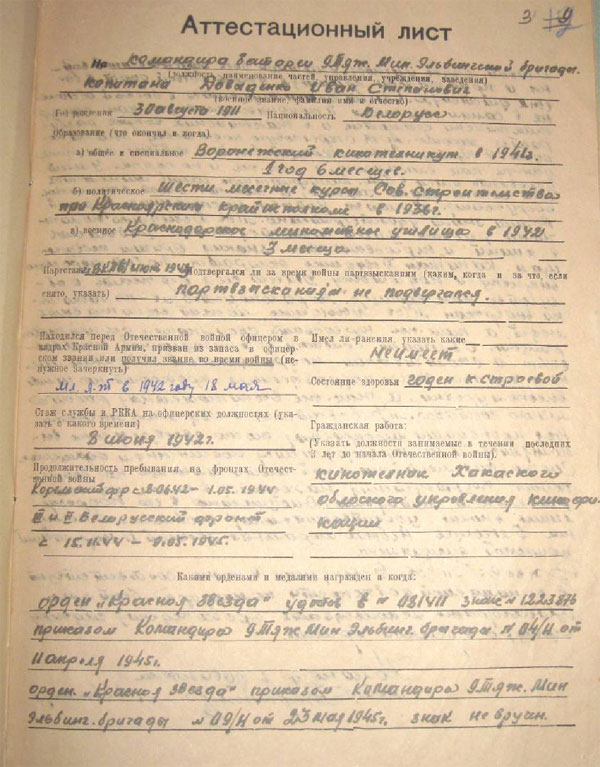 3 9
Аттестационный лист
На командира батареи 9 Тяж. Мин. Эльбингской бригады.
(должность, наименование частей, управления, учреждения, заведения)
капитана Довыденко Иван Степанович
(военное звание, фамилия имя и отчество)
Год рождения 30 августа 1911 Национальность Белорусс
Образование (что окончил и когда).
а) общее и специальное Воронежский кинотехникум в 1941г.
1 год 6 месяцев.
б) политическое Шести месячные курсы Сов. Строительства
при Красноярском Крайисполкоме в 1936г.
в) военное Краснодарское минометное училище в 1942
3 месяца
Партстаж июль 1944 Подвергался ли за время войны партвзысканиям (каким, когда и за что, если
снято, указать) партвзысканиям не подвергался.
Находился перед Отечественной войной офицером в
кадрах Красной Армии, призван из запаса в офицер-
ском звании или получил звание во время войны (не-
нужное зачеркнуть)
Мл л-т в 1942 году 18 мая
Имел ли ранения, указать какие
Не имеет
Состояние здоровья годен к строевой
Стаж службы в РККА на офицерских должностях (ука-
зать с какого времени)
8 июня 1942г.
Продолжительность пребывания на фронтах Отечест-
венной войны
8.06.42 - 1.05.1944
II и III Белорусский фронт
с 15.11.44 - 9.05.1945.
Гражданская работа:
(Указать должности занимаемые в течении последних
3 лет до начала Отечественной войны).
кинотехник Хакаского
областого управления кинофи-
кации
Какими орденами и медалями награжден и когда:
орден „Красная звезда" удостов в № 081411 знак № 1223876
приказом Командира 9 Тяж Мин Эльбинг. бригады № 04/н от
11 апреля 1945г.
орден „Красная звезда" приказом Командира 9 Тяж. Мин
Эльбинг. бригады № 09/н от 23 мая 1945г. знак не вручен.